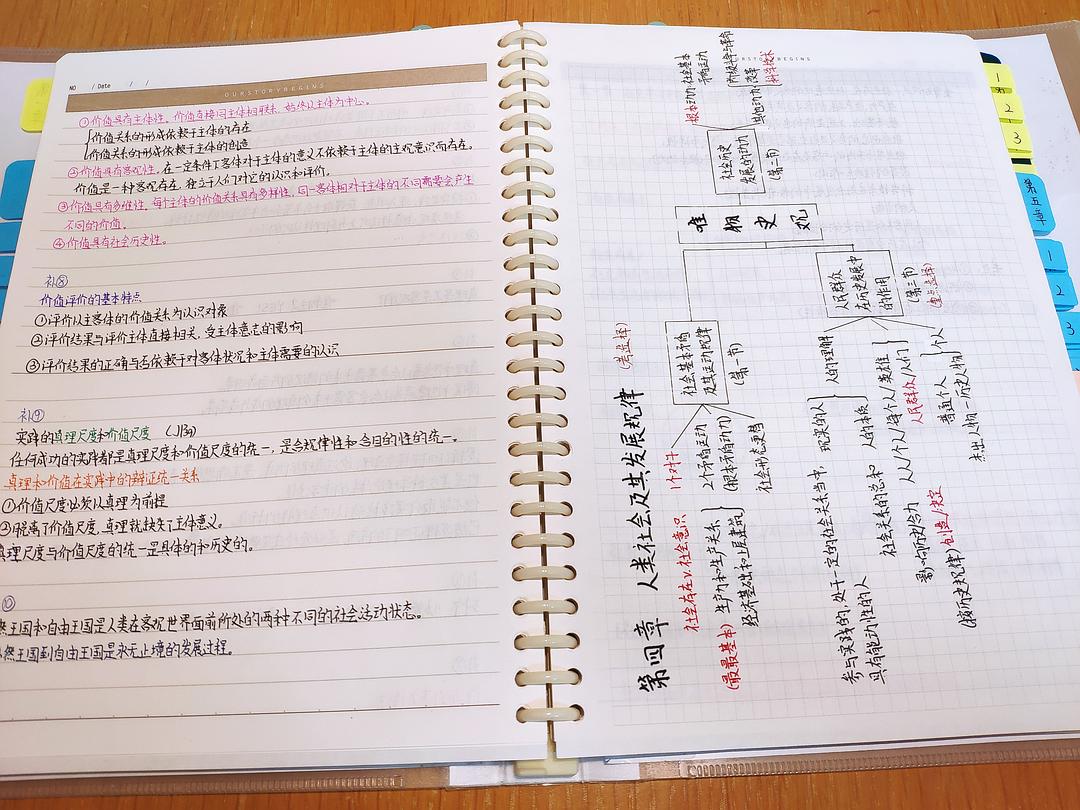 NO / Date / /
OURSTORYBEGINS
①价值具有主体性。价值直接同主体相联系,始终以主体为中心。
价值关系的形成依赖于主体的存在
价值关系的形成依赖于主体的创造
②价值具有客观性。在一定条件下客体对于主体的意义不依赖于主体的主观意识而存在。
价值是一种客观存在,独立于人们对它的认识和评价。
③价值具有多维性。每个主体的价值关系具有多样性,同一客体相对于主体的不同需要会产生
不同的价值。
④价值具有社会历史性。
补⑧
价值评价的基本特点
①评价以主客体的价值关系为认识对象
②评价结果与评价主体直接相关,受主体意志的影响
③评价结果的正确与否依赖于对客体状况和主体需要的认识
补⑨
实践的真理尺度和价值尺度
任何成功的实践都是真理尺度和价值尺度的统一,是合规律性和合目的性的统一。
真理和价值在实践中的辩证统一关系
①价值尺度必须以真理为前提
②脱离了价值尺度,真理就缺失了主体意义。
真理尺度与价值尺度的统一是具体的和历史的。
⑩
然王国和自由王国是人类在客观世界面前所处的两种不同的社会活动状态。
然王国到自由王国是永无止境的发展过程。
第四章 人类社会及其发展规律 (考选择)
唯物史观
社会基本矛盾
及其运动规律
(第一节)
1个对子
社会存在v.社会意识
2个矛盾运动
(根本矛盾动力)
(最最基本)
生产力和生产关系
经济基础和上层建筑
社会形态更替
社会历史
发展的动力
(第二节)
根本动力:社会基本
矛盾运动
其他动力
改革
科学技术
人民群众
在历史发展中
的作用
(第三节)
(重点选择)
人的理解
现实的人
参与实践的,处于一定的社会关系当中,
具有能动性的人
人的本质
社会关系的总和
人人/个人/每个人/英雄
人民群众/人们
影响历史/合力
创造/决定
(按历史规律)
个人
普通个人
杰出人物—历史人物
OURSTORYBEGINS
1
2
3
第五章
1
2
3